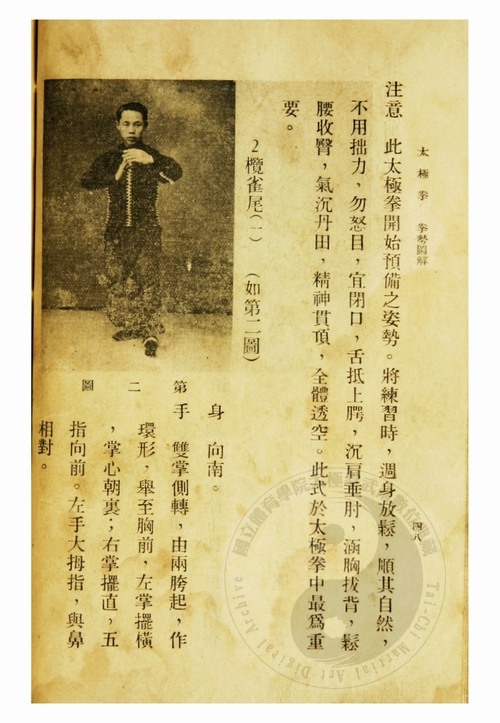 太極拳 拳勢圖解
四八
注意 此太極拳開始預備之姿勢。將練習時,週身放鬆,順其自然,
不用拙力、勿怒目,宜閉口,舌抵上腭,沉肩垂肘,涵胸拔背,鬆
腰收臀,氣沉丹田,精神貫頂,全體透空。此式於太極拳中最爲重
要。
2 欖雀尾(一) (如第二圖)
第二圖
身 向南。
手 雙掌側轉,由兩胯起,作
環形,舉至胸前,左掌擺橫
,掌心朝裏;右掌擺直,五
指向前。左手大拇指,與鼻
相對。
Tai-Chi Martial Art Digital Archive